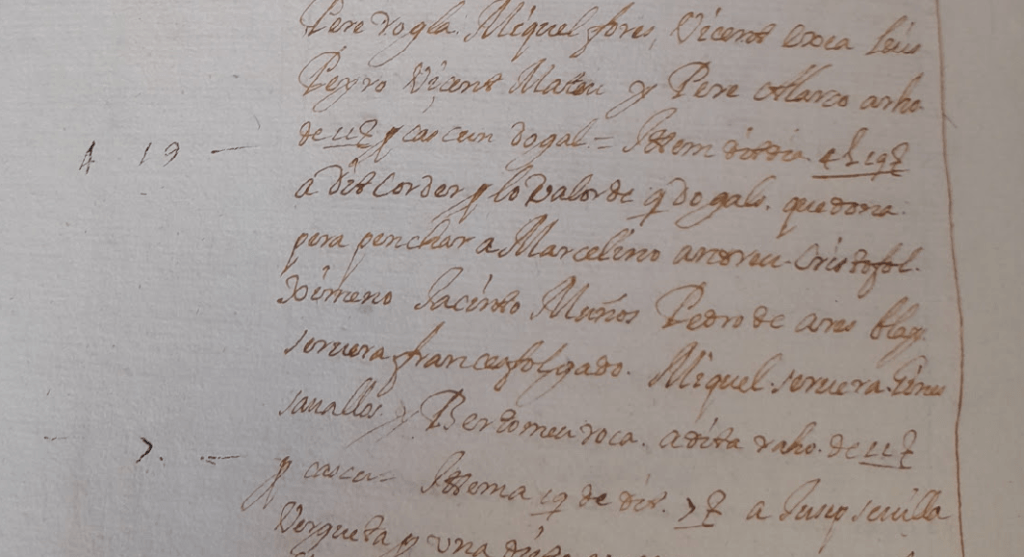 Pere rogla Miquel fores, Vicent Exea Luis
Peyro Vicent Mateu y Pere Marco a rho
de 11 p cascun dogal = Ittem dit dia 4 L 19
4 19 —
a dit Corder p lo valor de 9 dogals que dona
pera penchar a Marcelino andreu Cristofol
Ximeno Jacinto Muños Pedro de ares blay
servera frances folgado Miquel servera Gines
savallos y Bertomeu roca a dita raho de 11
7 —
p cascu = Ittem a 19 de dit 7 a Jusep sevilla
Vergueta y una